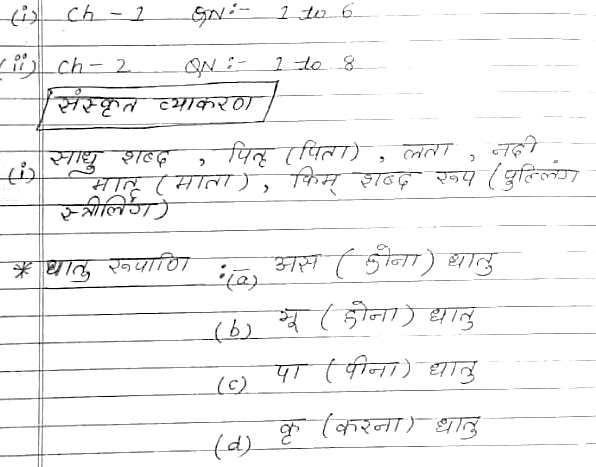 (i) Ch - 1 QN:- 1 to 6
(ii) Ch - 2 QN:- 1 to 8
संस्कृत व्याकरण
(i) साधु शब्द , पितृ (पिता) , लता , नदी
मातृ (माता) , किम् शब्द रूप (पुल्लिंग
स्त्रीलिंग)
* धातु रूपाणि :(a) अस (होना) धातु
(b) भू (होना) धातु
(c) पा (पीना) धातु
(d) कृ (करना) धातु